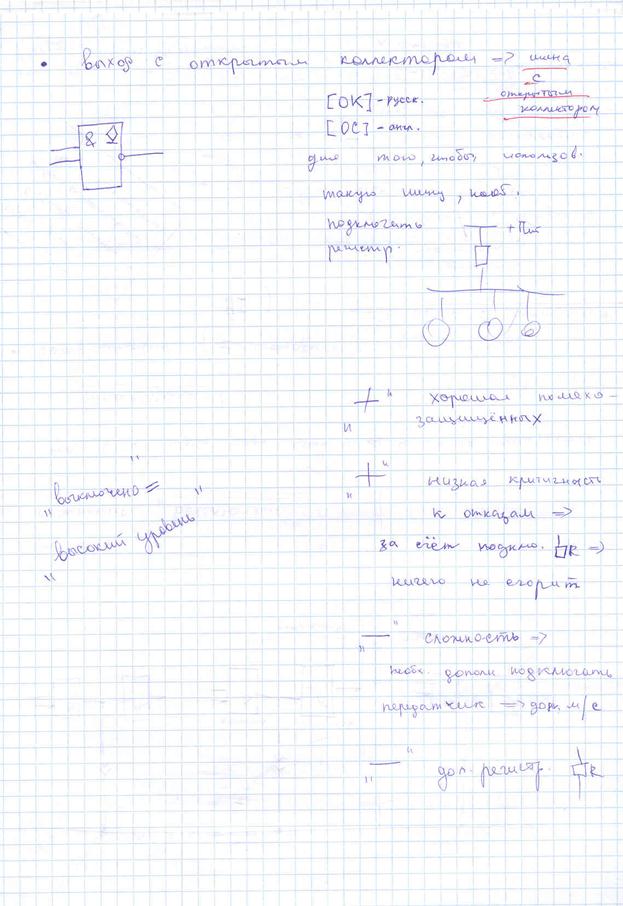 • выход с открытым коллектором => шина
с
открытым
коллектором
[ОК] - русск.
[ОС] - англ.
&
для того, чтобы использов.
такую шину, необ.
подключать
регистр.
+ Пит
"+" хорошая помехо-
защищённых
"выключено =
"высокий уровень"
"+" низкая критичность
к отказам =>
за счёт подклю. R =>
ничего не сгорит
"—" сложность =>
необх. дополн подключать
передатчик => доп. м/с
"—" доп. регистр. R